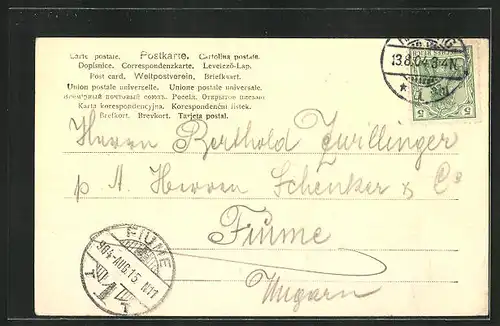 Carte postale. Postkarte. Cartolina postale.
Dopisnice. Correspondenzkarte. Levelező-Lap.
Post card. Weltpostverein. Briefkaart.
Union postale universelle. Unione postale universale.
Всемірный почтовый союзъ. Россія. Открытое письмо.
Karta korespondencyjna. Korespondenční lístek.
Brefkort. Brevkort. Tarjeta postal.
13.8.04.8-4N.
5 5
Herrn Berthold Zwillinger
p. A. Herren Schenker & Co
Fiume
Ungarn
FIUME
904-AUG.15. N11
T